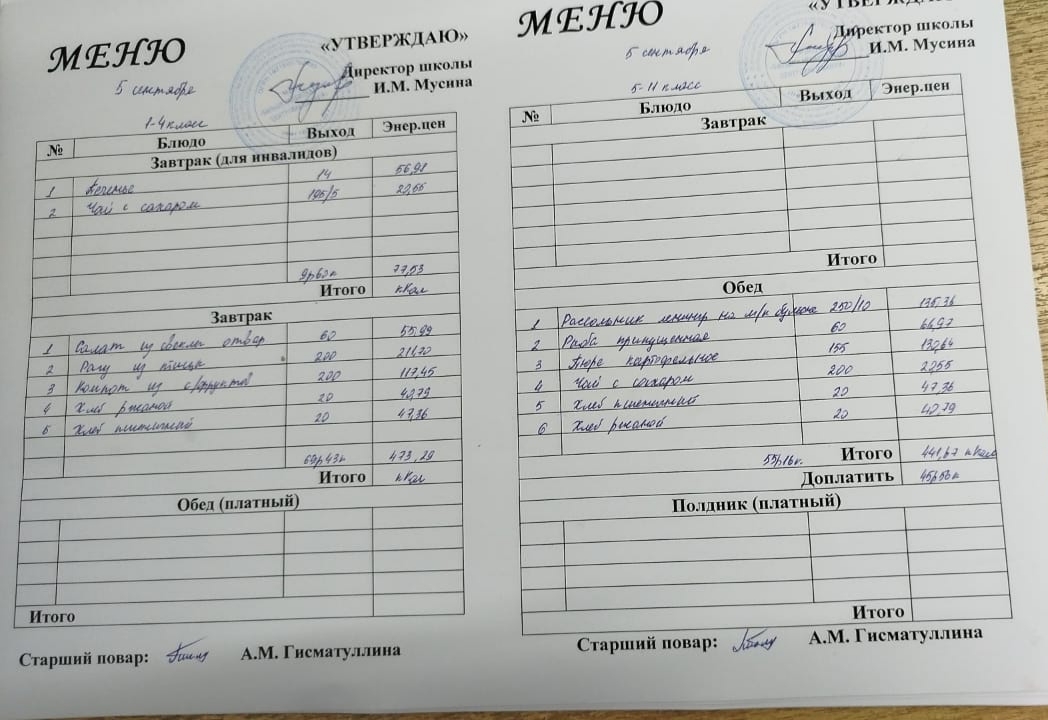 МЕНЮ
«УТВЕРЖДАЮ»
Директор школы
И.М. Мусина
5 сентября
1-4 класс
№ Блюдо Выход Энер.цен
Завтрак (для инвалидов)
1 Печенье 14 56,91
2 Чай с сахаром 195/5
9р62к 77,53
Итого кКал
Завтрак
1 Салат из свеклы отвар 60 55,99
2 Рагу из птицы 200 211,70
3 Компот из с/фруктов 200 117,45
4 Хлеб ржаной 20 40,79
5 Хлеб пшеничный 20 47,36
69р43к 473,29
Итого кКал
Обед (платный)
Итого
Старший повар: А.М. Гисматуллина
МЕНЮ
Директор школы
И.М. Мусина
5 сентября
5-11 класс
№ Блюдо Выход Энер.цен
Завтрак
Итого
Обед
1 Рассольник ленингр на м/к бульоне 250/10 135,36
2 Рыба припущенная 60 64,97
3 Пюре картофельное 155 130,64
4 Чай с сахаром 200 22,55
5 Хлеб пшеничный 20 47,36
6 Хлеб ржаной 20 40,79
55р16к. Итого 441,67 кКал
Доплатить 45р56к
Полдник (платный)
Итого
Старший повар: А.М. Гисматуллина